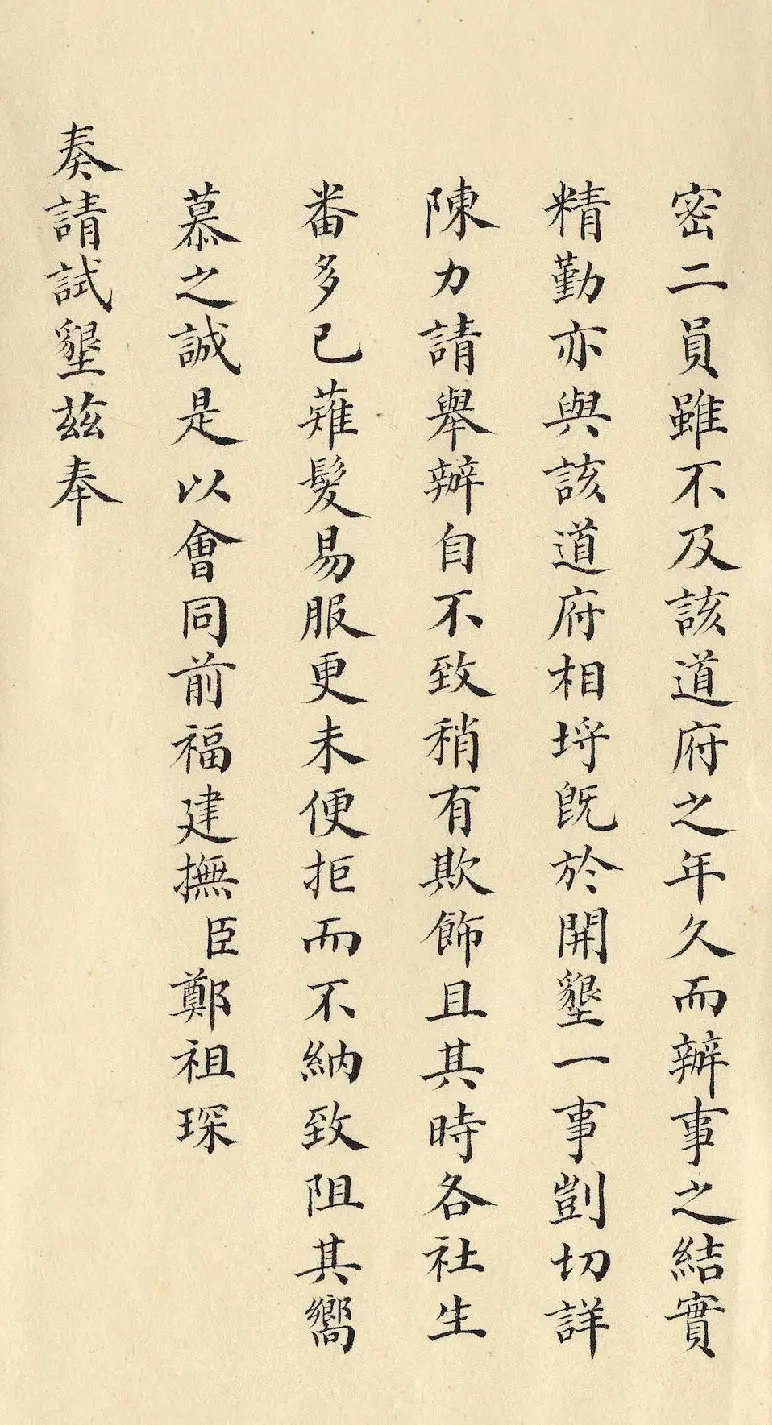 密二員雖不及該道府之年久而辦事之結實
精勤亦與該道府相埒既於開墾一事剴切詳
陳力請舉辦自不致稍有欺飾且其時各社生
番多已薙髮易服更未便拒而不納致阻其嚮
慕之誠是以會同前福建撫臣鄭祖琛
奏請試墾茲奉